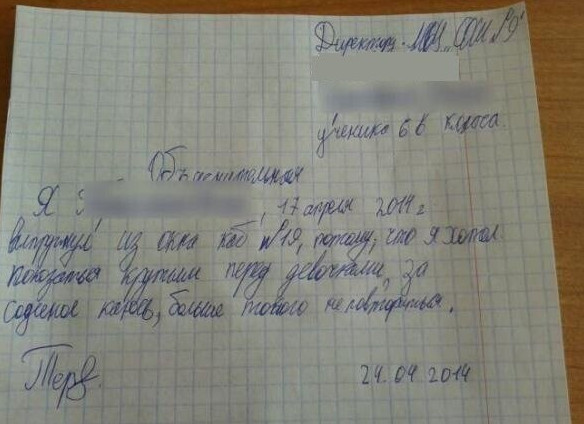 Директору МОУ "СОШ №9"
ученика 6 в класса.
Объяснительная
Я , 17 апреля 2014 г
выпрыгнул из окна каб №19, потому, что я хотел
показаться крутым перед девочками, за
содеяное каюсь, больше такого не повториться.
24.04.2014